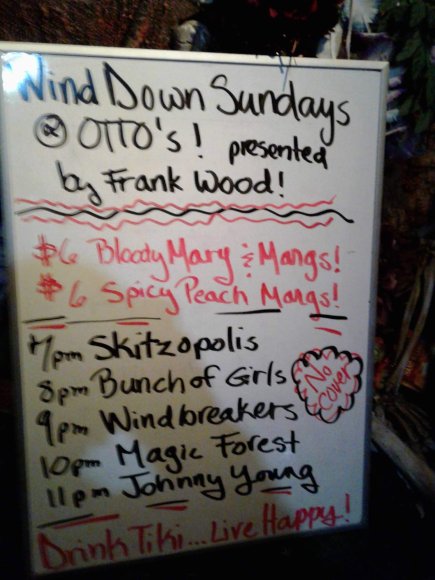 Wind Down Sundays
@ OTTO's! presented
by Frank Wood!
$6 Bloody Mary & Mangs!
$6 Spicy Peach Mangs!
7pm Skitzopolis
8pm Bunch of Girls
9pm Windbreakers
No
cover
10pm Magic Forest
11pm Johnny Young
Drink Tiki...Live Happy!